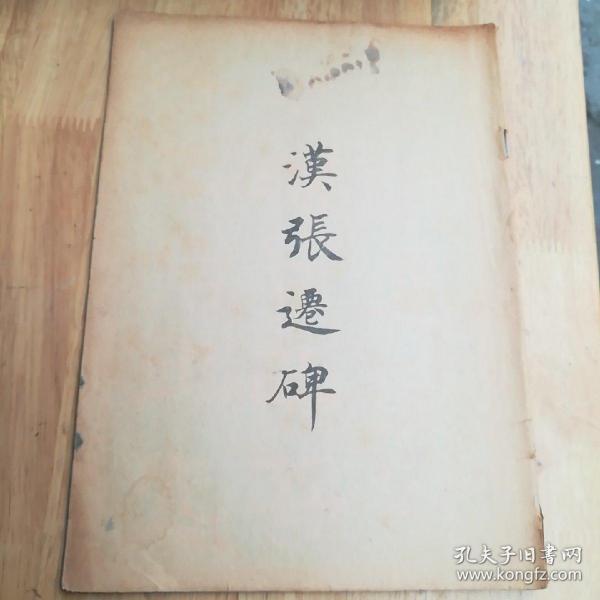 漢張遷碑
孔夫子旧書网
www.kongfz.com